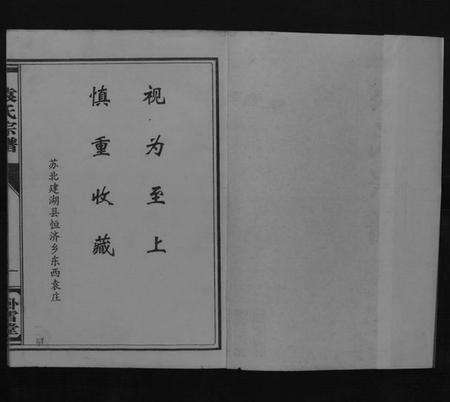 视为至上
慎重收藏
苏北建湖县恒济乡东西袁庄
氏宗谱